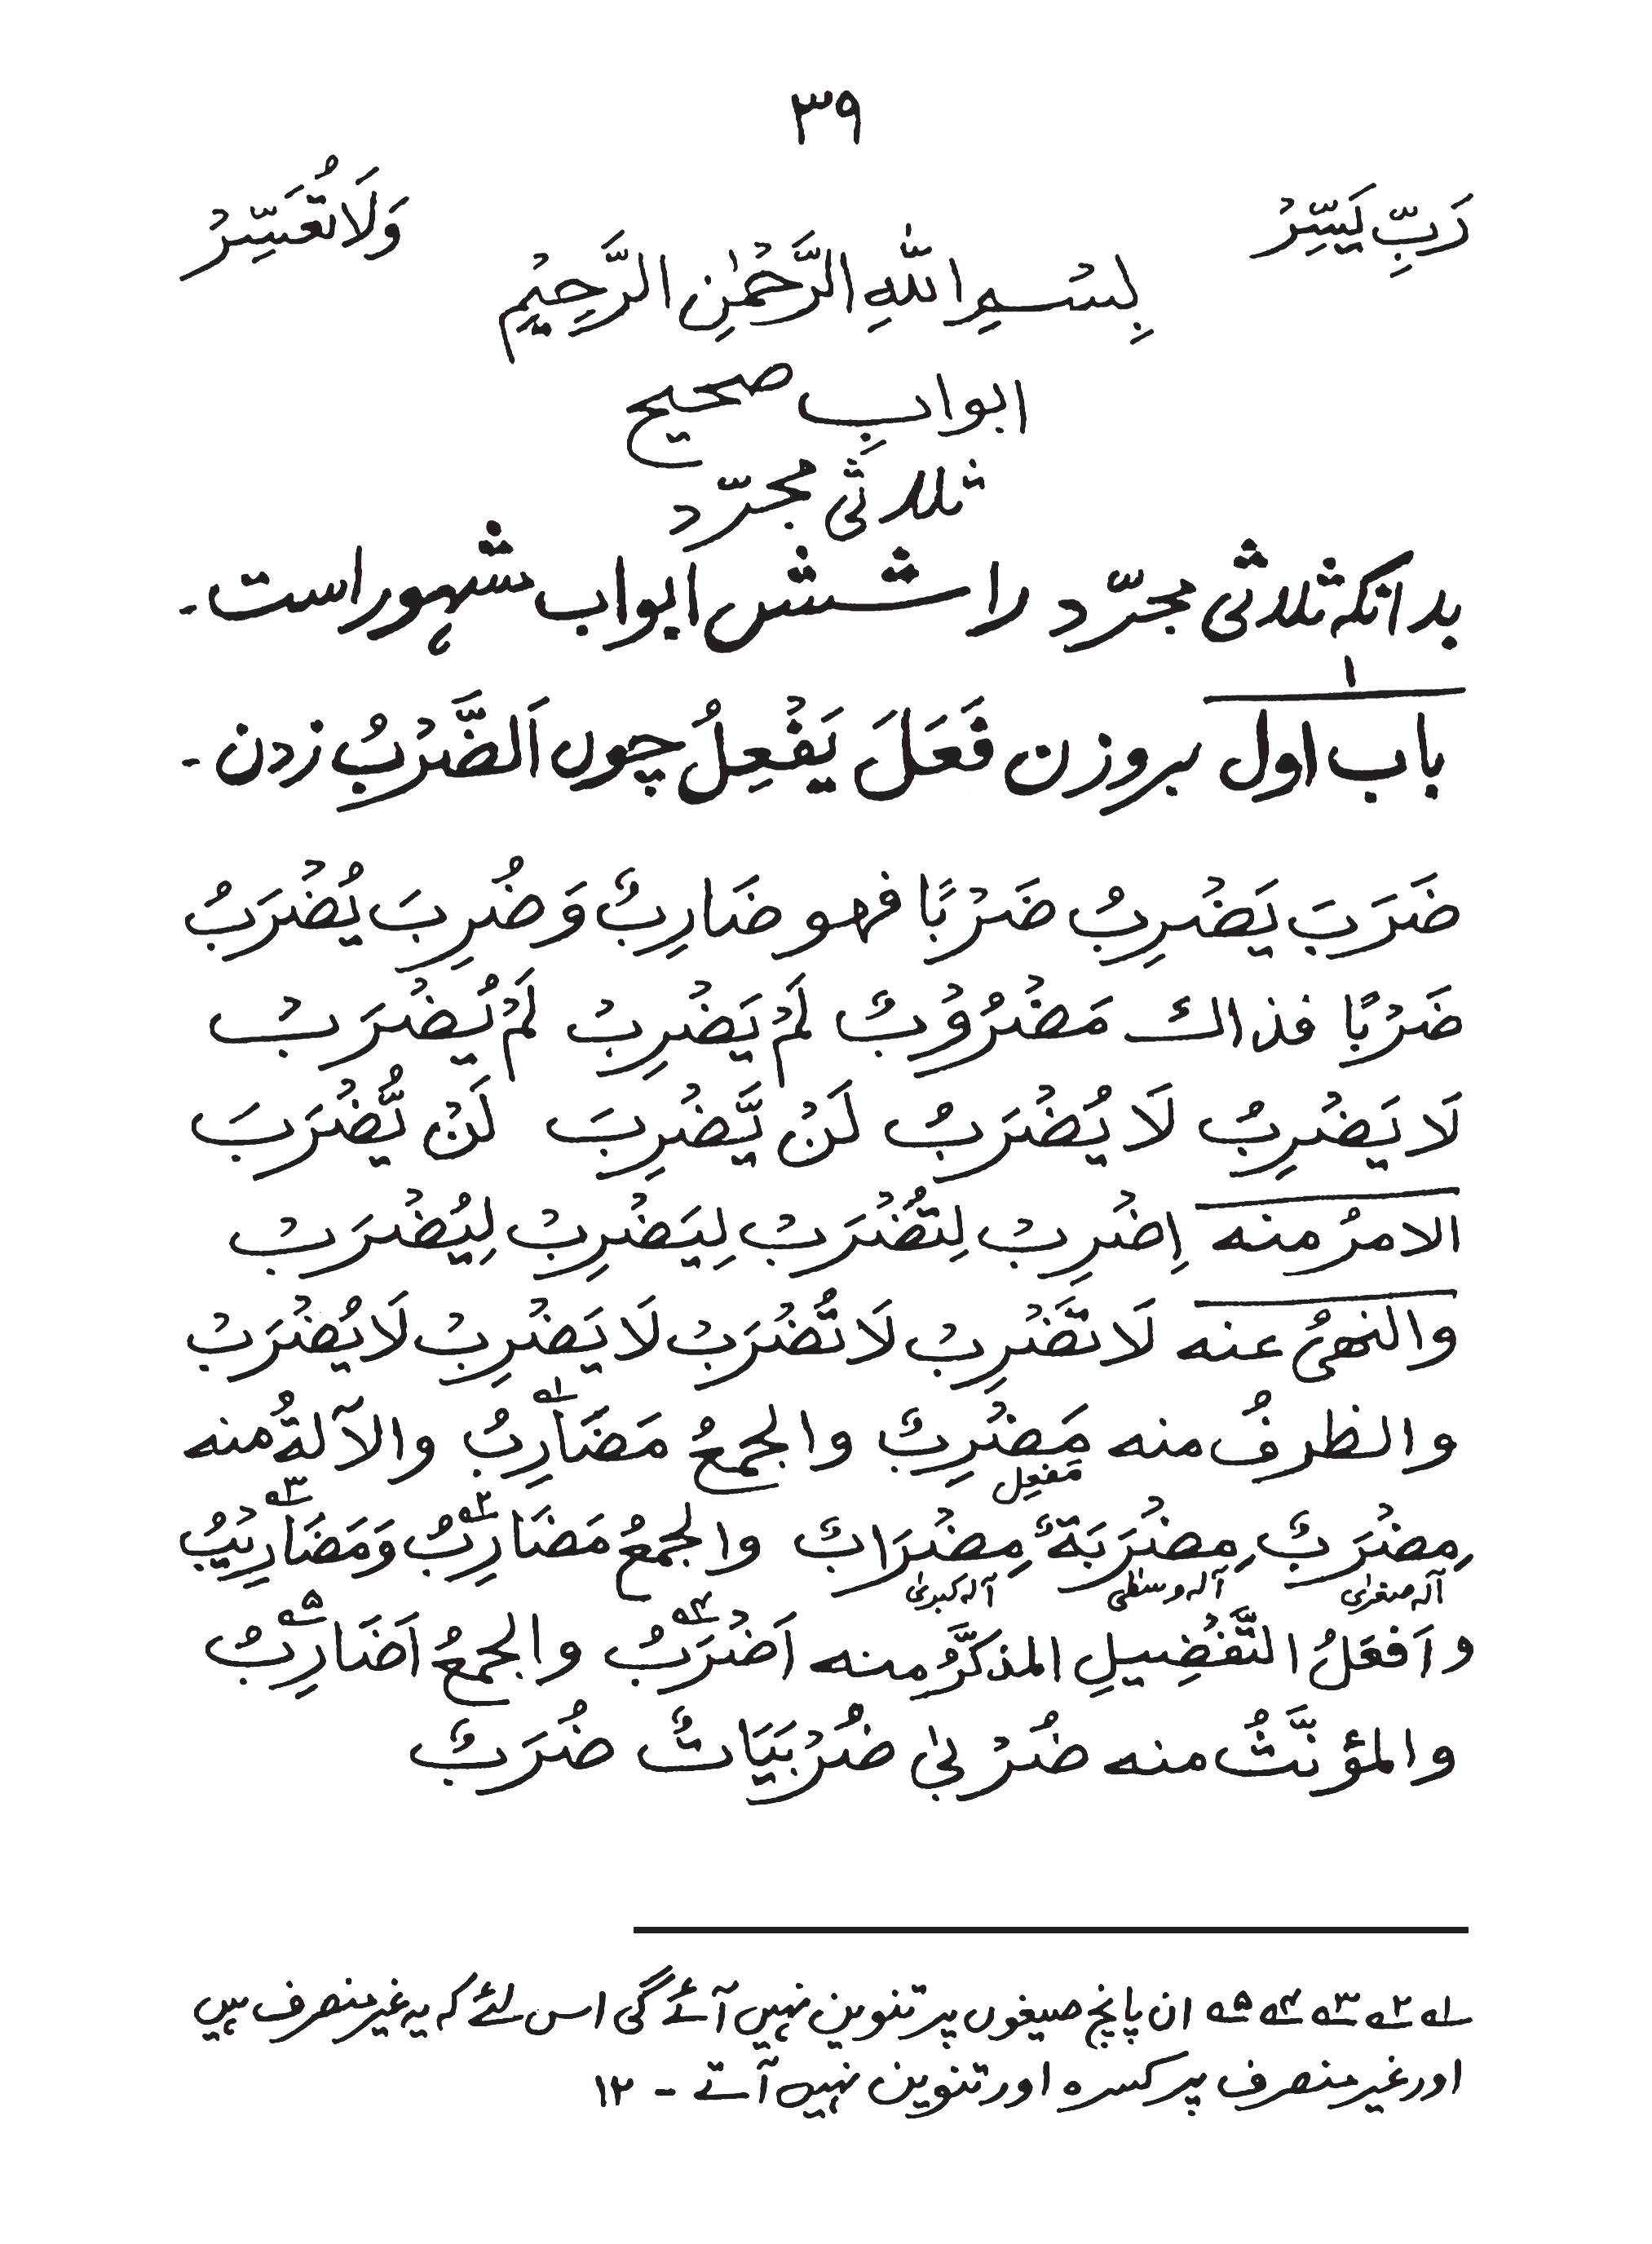 ٣٩
رَبِّ يَسِّرْ
وَلَا تُعَسِّرْ
بِسْمِ اللّٰهِ الرَّحْمٰنِ الرَّحِيْمِ
ابوابِ صحیح
ثلاثی مجرّد
بدانکہ ثلاثی مجرّد را شش ابواب مشہور است ۔
١
باب اول بروزن فَعَلَ يَفْعِلُ چوں اَلضَّرْبُ زدن ۔
ضَرَبَ يَضْرِبُ ضَرْبًا فهو ضَارِبٌ وَضُرِبَ يُضْرَبُ
ضَرْبًا فذاك مَضْرُوْبٌ لَمْ يَضْرِبْ لَمْ يُضْرَبْ
لَا يَضْرِبُ لَا يُضْرَبُ لَنْ يَّضْرِبَ لَنْ يُّضْرَبَ
الامرُ منه اِضْرِبْ لِتُضْرَبْ لِيَضْرِبْ لِيُضْرَبْ
والنهىُ عنه لَا تَضْرِبْ لَا تُضْرَبْ لَا يَضْرِبْ لَا يُضْرَبْ
والظرفُ منه مَضْرِبٌ والجمعُ مَضَارِبُ ۱؎ والآلةُ منه
مَفعِل
مِضْرَبٌ مِضْرَبَةٌ مِضْرَابٌ والجمعُ مَضَارِبُ ۲؎ وَمَضَارِيْبُ ۳؎
آلہ صغریٰ آلہ وسطیٰ آلہ کبریٰ
و اَفعَلُ التَّفْضِيلِ المذكَّرُ منه اَضْرَبُ ۴؎ والجمعُ اَضَارِبُ ۵؎
والمؤنَّثُ منه ضُرْبىٰ ضُرْبَيَاتٌ ضُرَبٌ
۱؎ ۲؎ ۳؎ ۴؎ ۵؎ ان پانچ صیغوں پر تنوین نہیں آئے گی اس لئے کہ یہ غیر منصرف ہیں
اور غیر منصرف پر کسرہ اور تنوین نہیں آتے - ۱۲